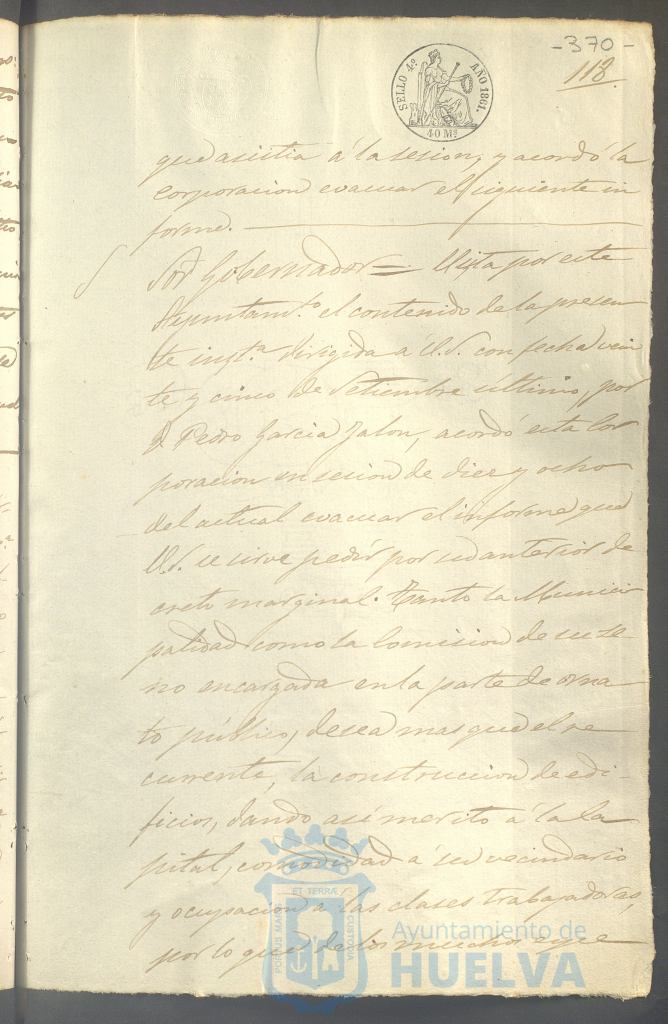 -370-
118.
SELLO 4º AÑO 1861.
40 Ms
que asistia á la sesion, y acordó la
corporacion evacuar el siguiente in
forme.
Sor Gobernador = Vista por este
Ayuntamto el contenido de la presen
te instª dirigida á V.S. con fecha vein
te y cinco de Setiembre último, por
D Pedro Garcia Jalon, acordó esta Cor
poracion en sesion de diez y ocho
del actual evacuar el informe que
V.S. se sirve pedir por su anterior de
creto marginal. Tanto la Munici
palidad como la Comision de su se
no encargada en la parte de orna
to público, desea mas que el re
currente, la construccion de edi-
ficios, dando asi merito á la Ca
pital, comodidad á su vecindario
y ocupacion á las clases trabajadoras,
por lo que de los muchos espe
PORTUS MARIS ET TERRÆ CUSTODIA
Ayuntamiento de
HUELVA